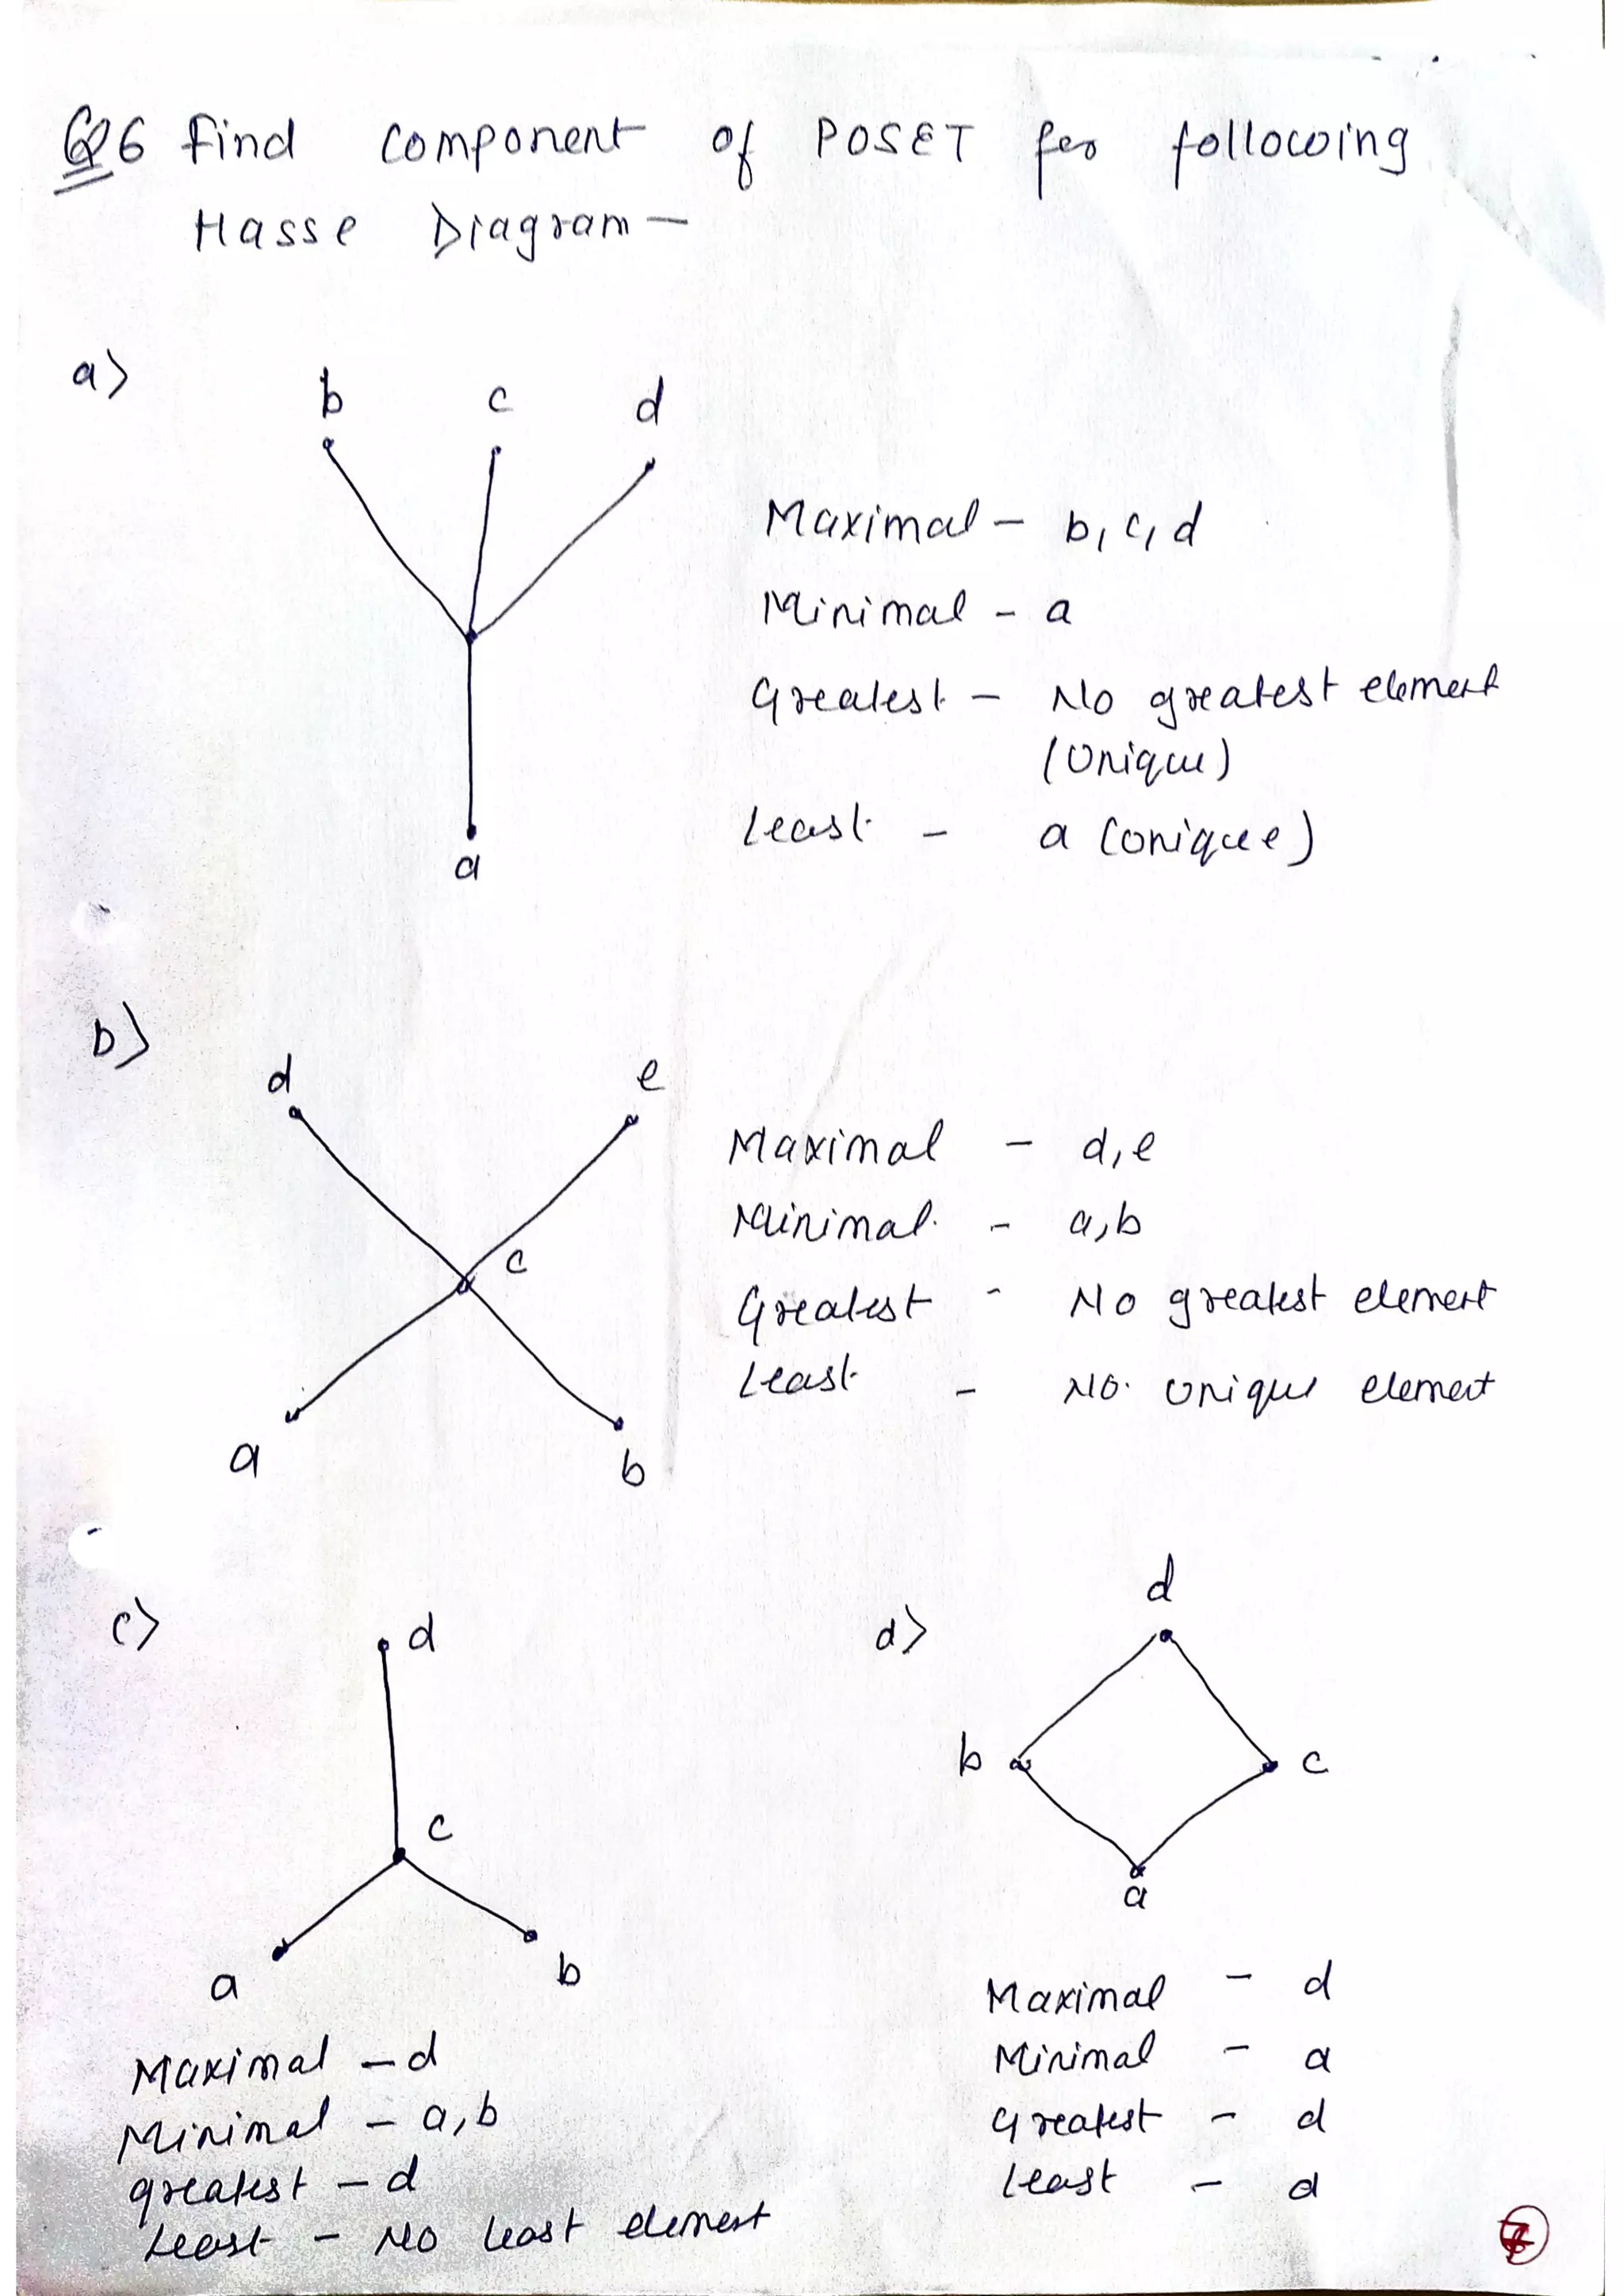 Q6 Find component of POSET for following
Hasse Diagram —
a)
b c d
a
Maximal — b, c, d
Minimal - a
Greatest — No greatest element
(Unique)
Least - a (unique)
b)
d e
c
a b
Maximal - d, e
Minimal - a, b
Greatest - No greatest element
Least - No unique element
c)
d
c
a b
Maximal - d
Minimal - a, b
greatest - d
Least - No least element
d)
d
b c
a
Maximal - d
Minimal - a
Greatest - d
Least - a